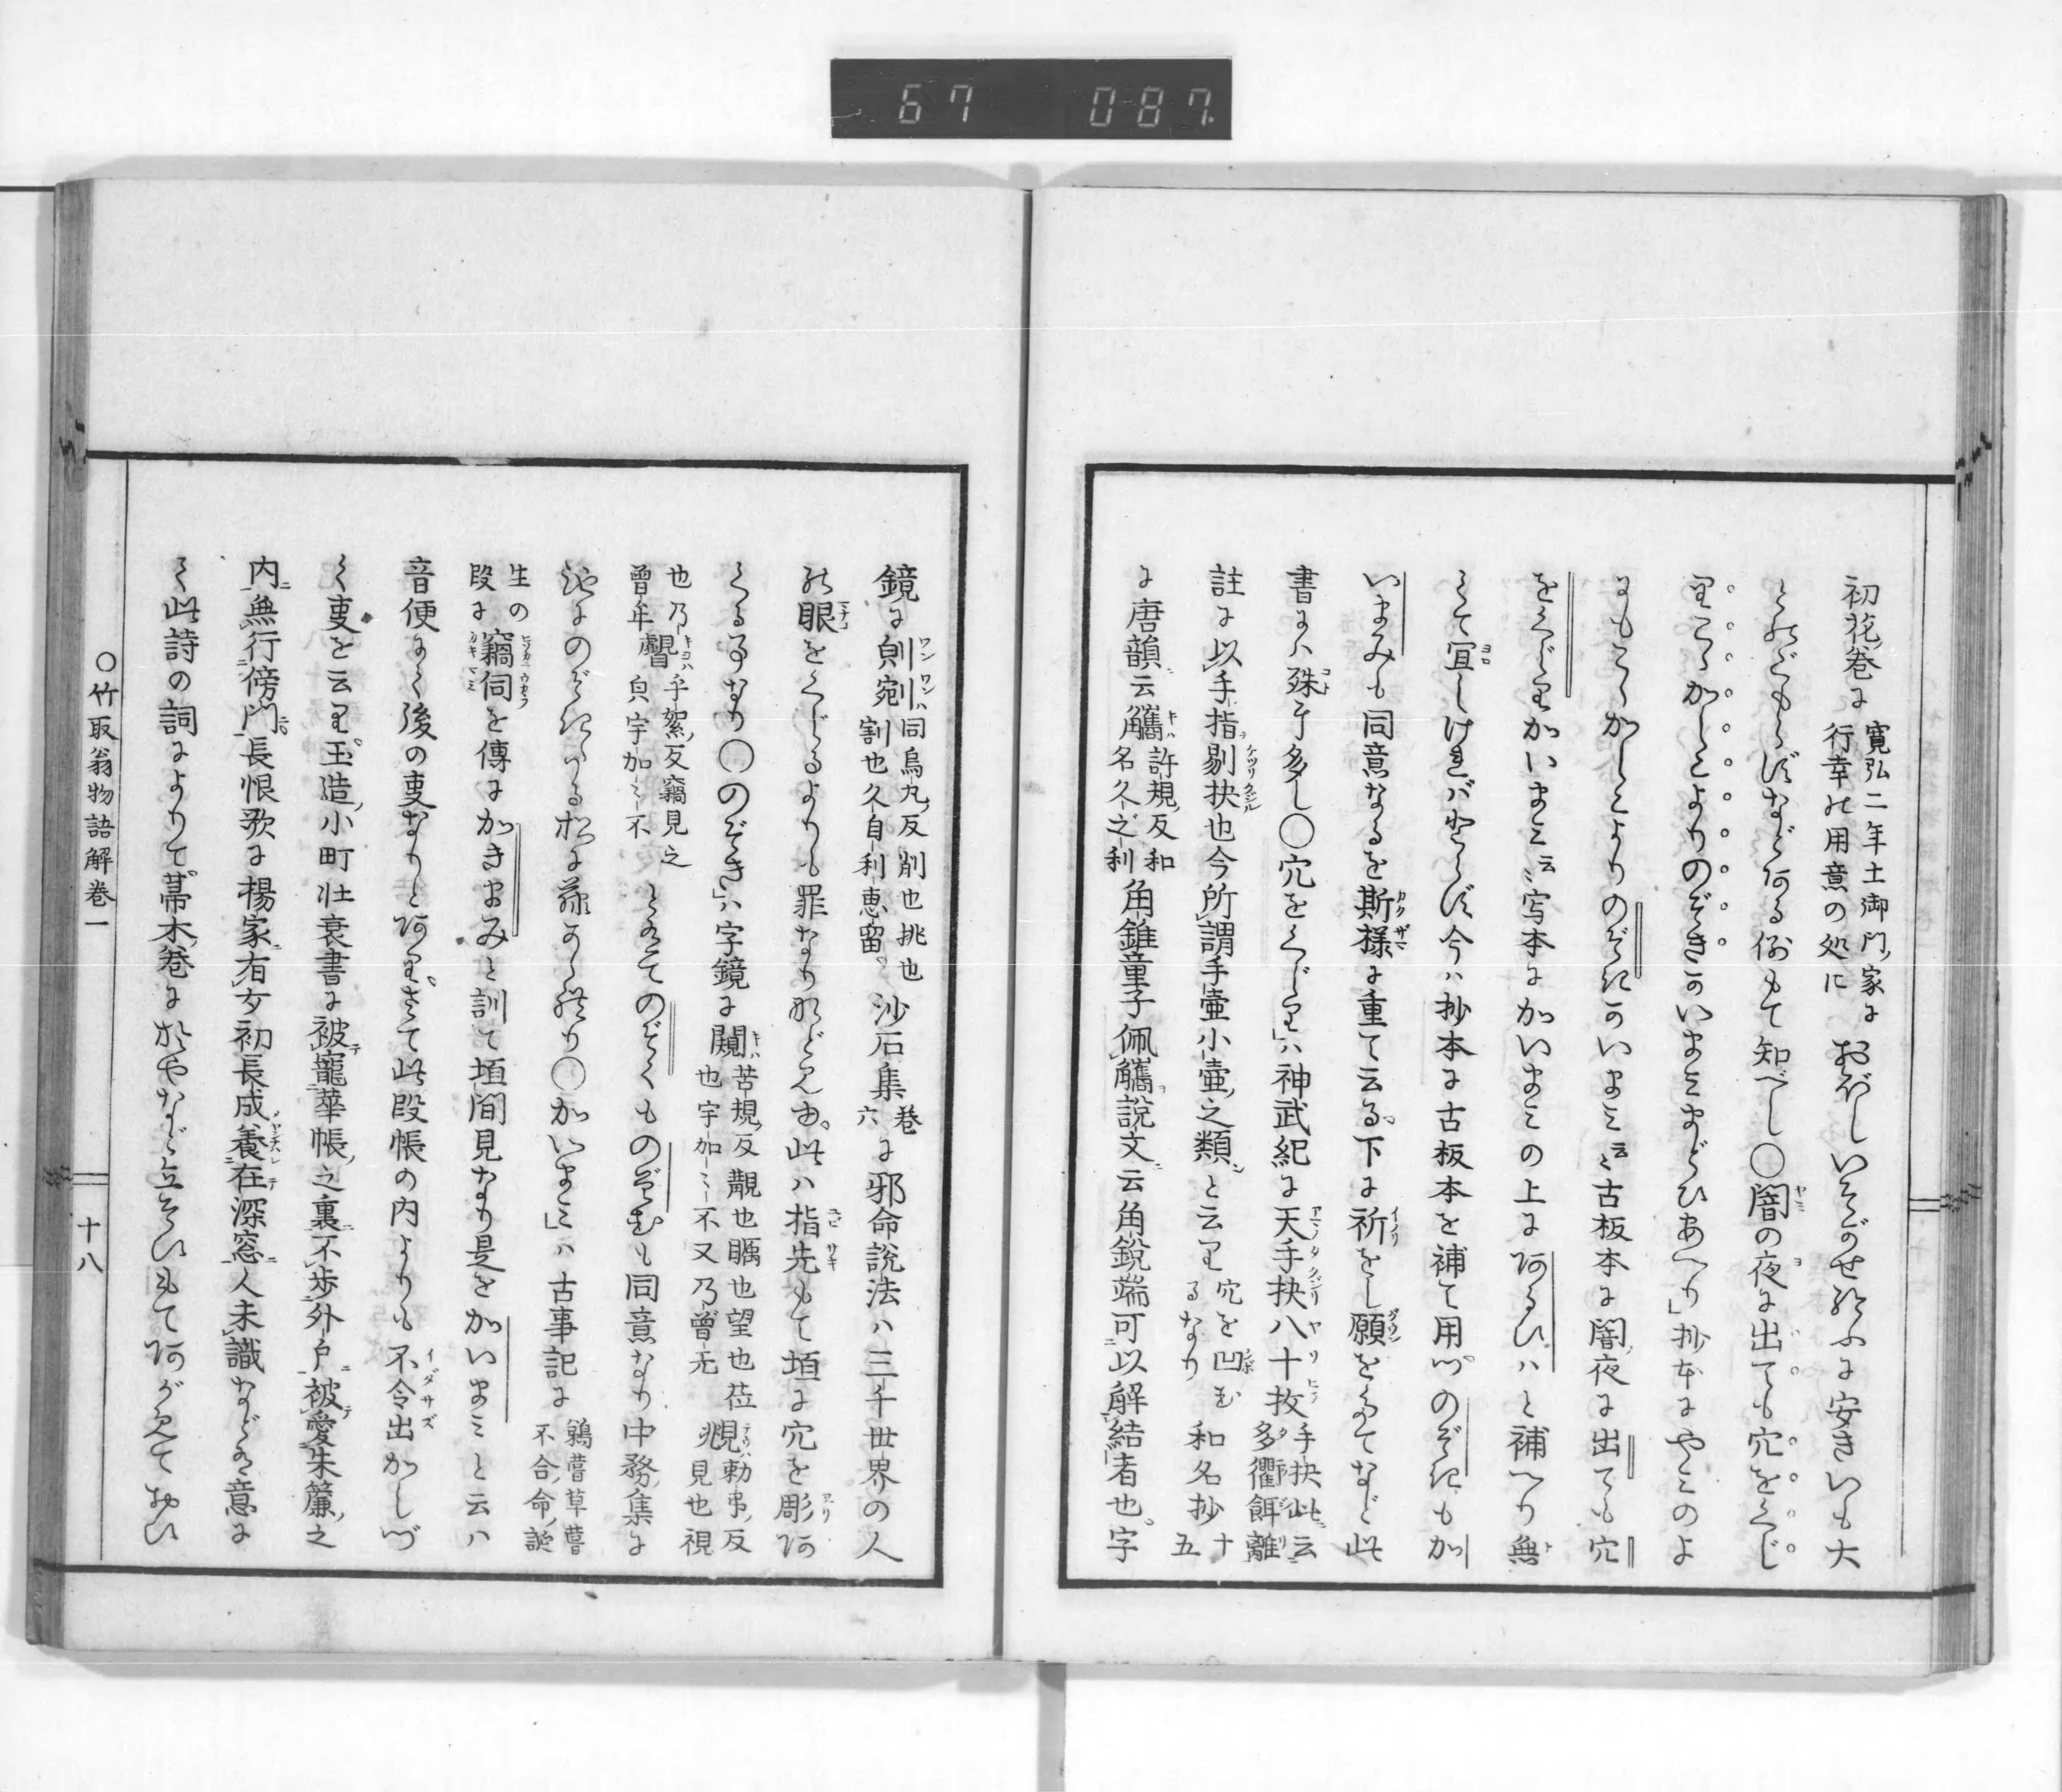 67 087.
初花巻に 寛弘二年土御門家に行幸の用意の処に おぼしいそがせ給ふに安きいも大
とのどもらずなどある例もて知べし〇闇の夜に出ても穴をくじ
りこゝかしこよりのぞきかいまミまどひあへり」抄本にやミのよ
にもこゝかしこよりのぞきかいまミ云〻古板本に闇夜に出ても穴
をくじりかいまミ云〻写本にかいまミの上にあるひハと補へり無
とて宜しけれバとらず今ハ抄本に古板本を補て用つのぞきもか
いまみも同意なるを斯様に重て云る。下に祈をし願をたてなど此
書にハ殊に多し〇穴をくじり」ハ神武紀に天手抉八十枚 手抉此云多衢餌離
註に以手指剔抉也今所謂手壷小壷之類と云り 穴を凹むるなり 和名抄 十五
に唐韻云觿 許規反和名久之利 角錐童子佩觿説文云角鋭端可以解結者也。字
鏡に剜宛 同烏丸反削也挑也割也久自利恵留。 沙石集 巻六 に邪命説法ハ三千世界の人
の眼をくじるよりも罪なりなど見ゆ。此ハ指先もて垣に穴を彫あ
くる事なり〇のぞき」ハ字鏡に闚 苦規反覰也瞩也望也莅也宇加〻不又乃曽无 覜 勅弔反眺見也視
也乃曽牟 覱 乎絮反竊見之皃宇加〻不 とみえてのぞくものぞむも同意なり中務集に
池にのぞきたる松に藤かゝれり〇かいまミ」ハ古事記に 鵜葺草葺不合命誕
生の段に 竊伺を傳にかきまみと訓て垣間見なり是をかいまミと云ハ
音便にて後の㕝なりとあり。さて此段帳の内よりも不令出かしづ
く㕝を云り。玉造小町壮衰書に被寵華帳之裏不歩外戸被愛朱簾之
内無行傍門。長恨歌に楊家有女初長成養在深窓人未識などみえ意に
て此詩の詞によりて。帚木巻に於やなど立そひもてあがめておひ
〇竹取翁物語解巻一
十八